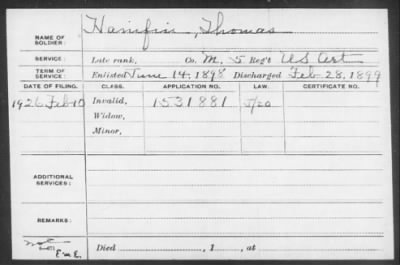 NAME OF SOLDIER: Hanifin, Thomas
SERVICE: Late rank, Co. M, 5 Reg't US Art
TERM OF SERVICE: Enlisted June 14, 1898 Discharged Feb 28, 1899
DATE OF FILING. CLASS. APPLICATION NO. LAW. CERTIFICATE NO.
1926 Feb 10 Invalid, 1531881
Widow,
Minor,
ADDITIONAL SERVICES:
REMARKS:
Died , 1 , at